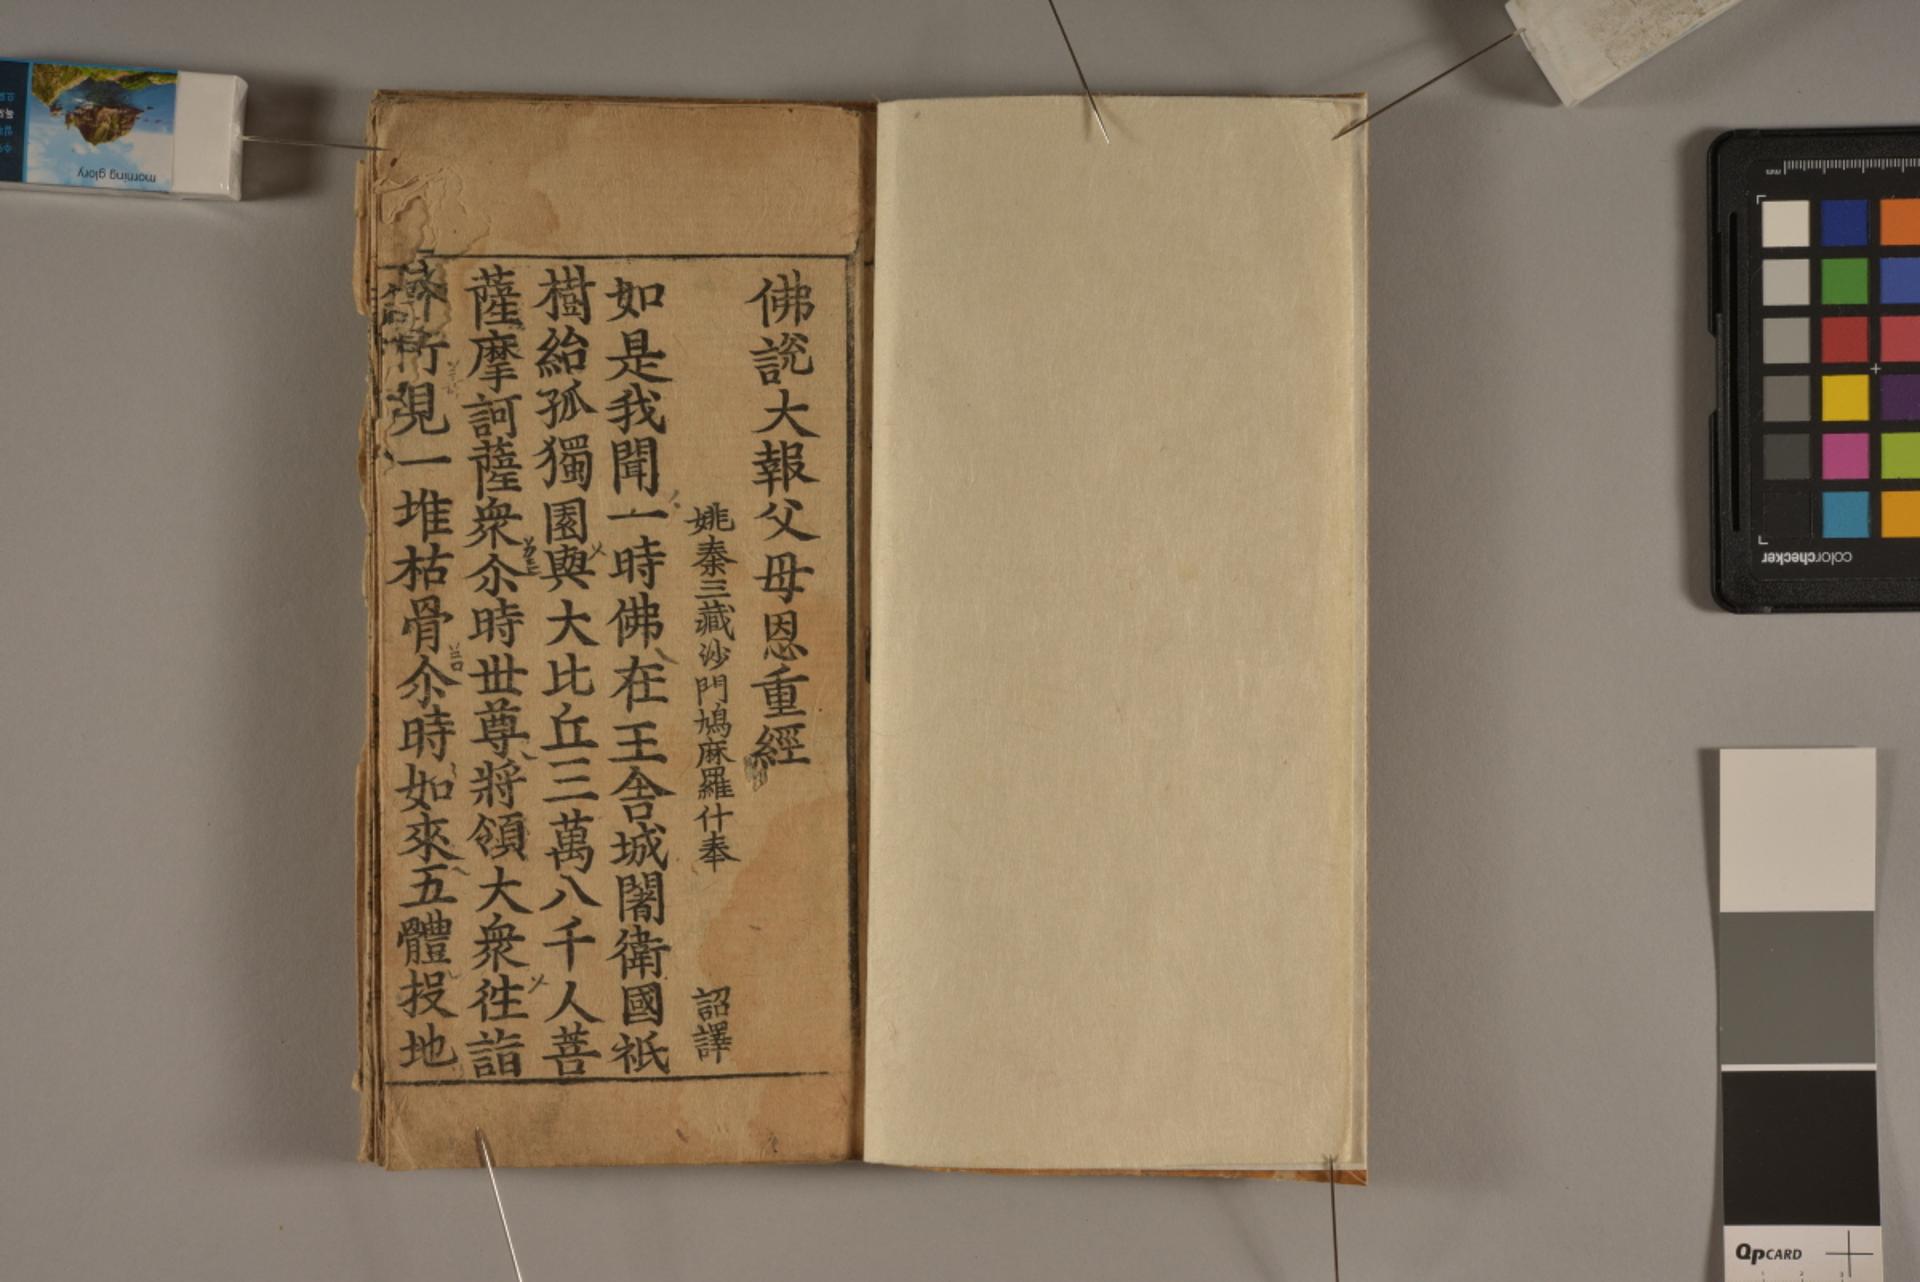 佛說大報父母恩重經
姚秦三藏沙門鳩麻羅什奉 詔譯
如是我聞一時佛在王舍城闍衛國祇
樹給孤獨園與大比丘三萬八千人菩
薩摩訶薩衆尒時世尊將領大衆徃詣
行見一堆枯骨尒時如來五體投地
morning glory
colorchecker
mm
QPCARD